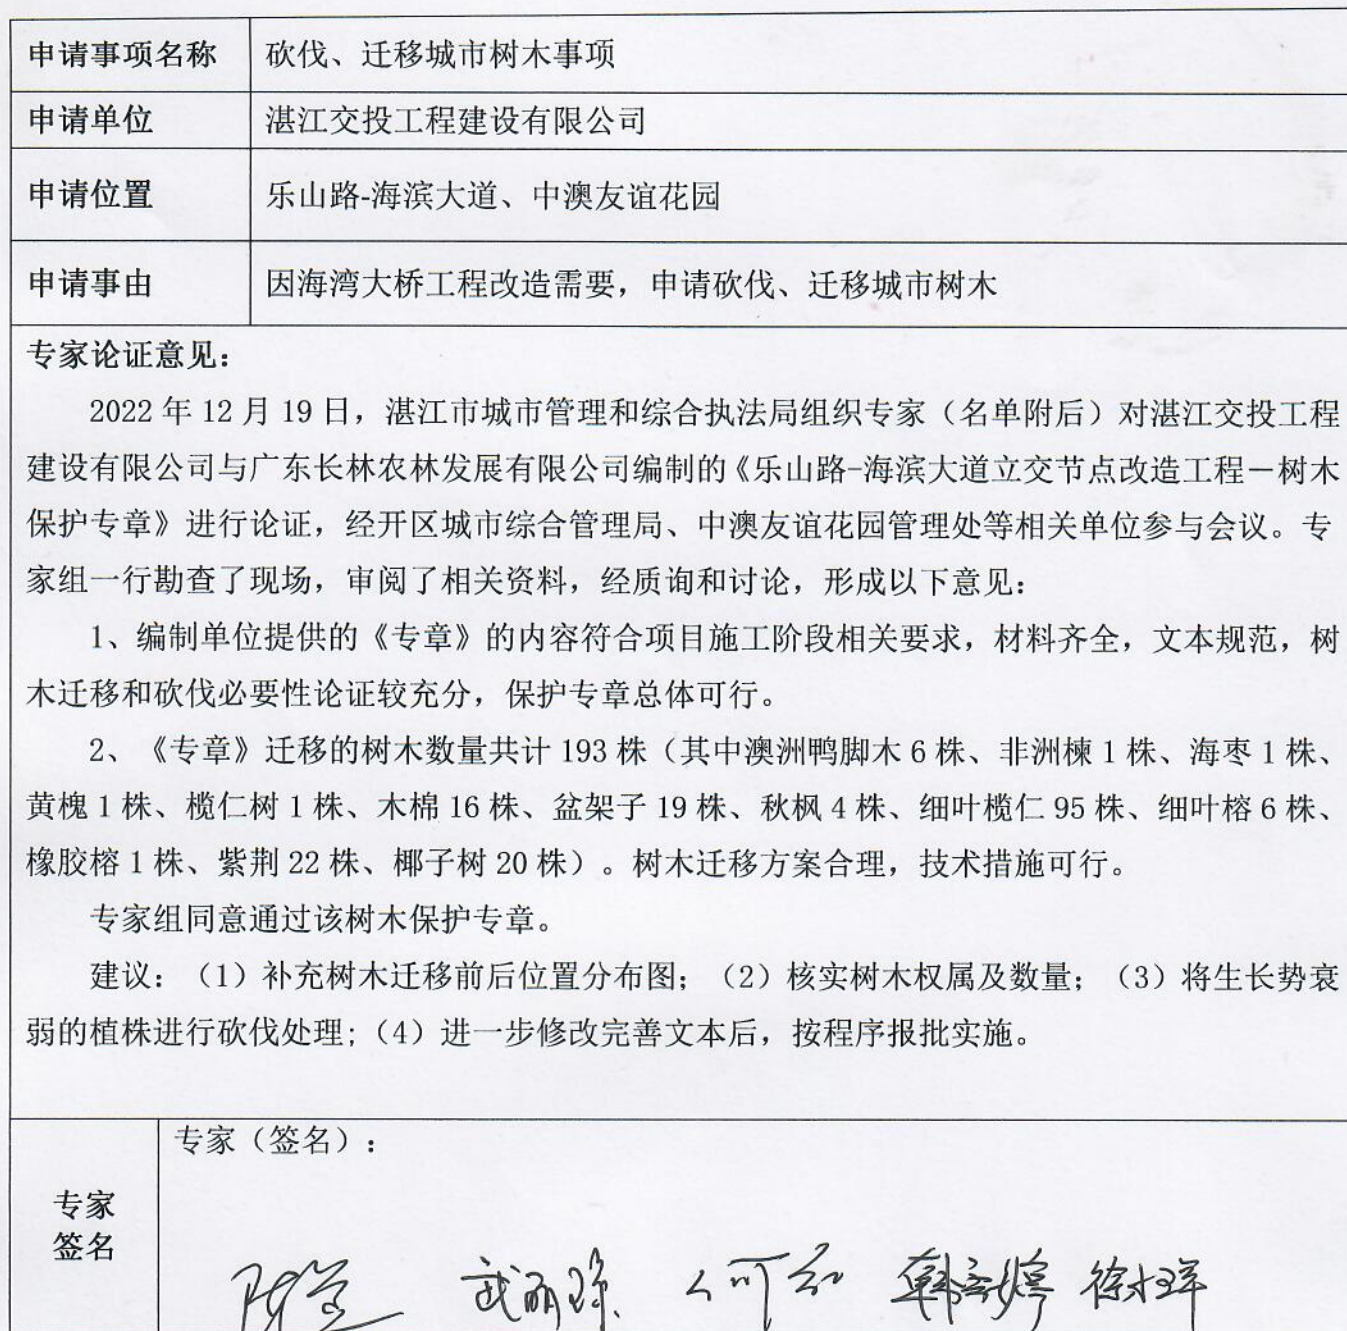 申请事项名称 砍伐、迁移城市树木事项
申请单位 湛江交投工程建设有限公司
申请位置 乐山路-海滨大道、中澳友谊花园
申请事由 因海湾大桥工程改造需要，申请砍伐、迁移城市树木
专家论证意见：
2022 年 12 月 19 日，湛江市城市管理和综合执法局组织专家（名单附后）对湛江交投工程
建设有限公司与广东长林农林发展有限公司编制的《乐山路-海滨大道立交节点改造工程－树木
保护专章》进行论证，经开区城市综合管理局、中澳友谊花园管理处等相关单位参与会议。专
家组一行勘查了现场，审阅了相关资料，经质询和讨论，形成以下意见：
1、编制单位提供的《专章》的内容符合项目施工阶段相关要求，材料齐全，文本规范，树
木迁移和砍伐必要性论证较充分，保护专章总体可行。
2、《专章》迁移的树木数量共计 193 株（其中澳洲鸭脚木 6 株、非洲楝 1 株、海枣 1 株、
黄槐 1 株、榄仁树 1 株、木棉 16 株、盆架子 19 株、秋枫 4 株、细叶榄仁 95 株、细叶榕 6 株、
橡胶榕 1 株、紫荆 22 株、椰子树 20 株）。树木迁移方案合理，技术措施可行。
专家组同意通过该树木保护专章。
建议：（1）补充树木迁移前后位置分布图；（2）核实树木权属及数量；（3）将生长势衰
弱的植株进行砍伐处理;（4）进一步修改完善文本后，按程序报批实施。
专家（签名）：
专家
签名